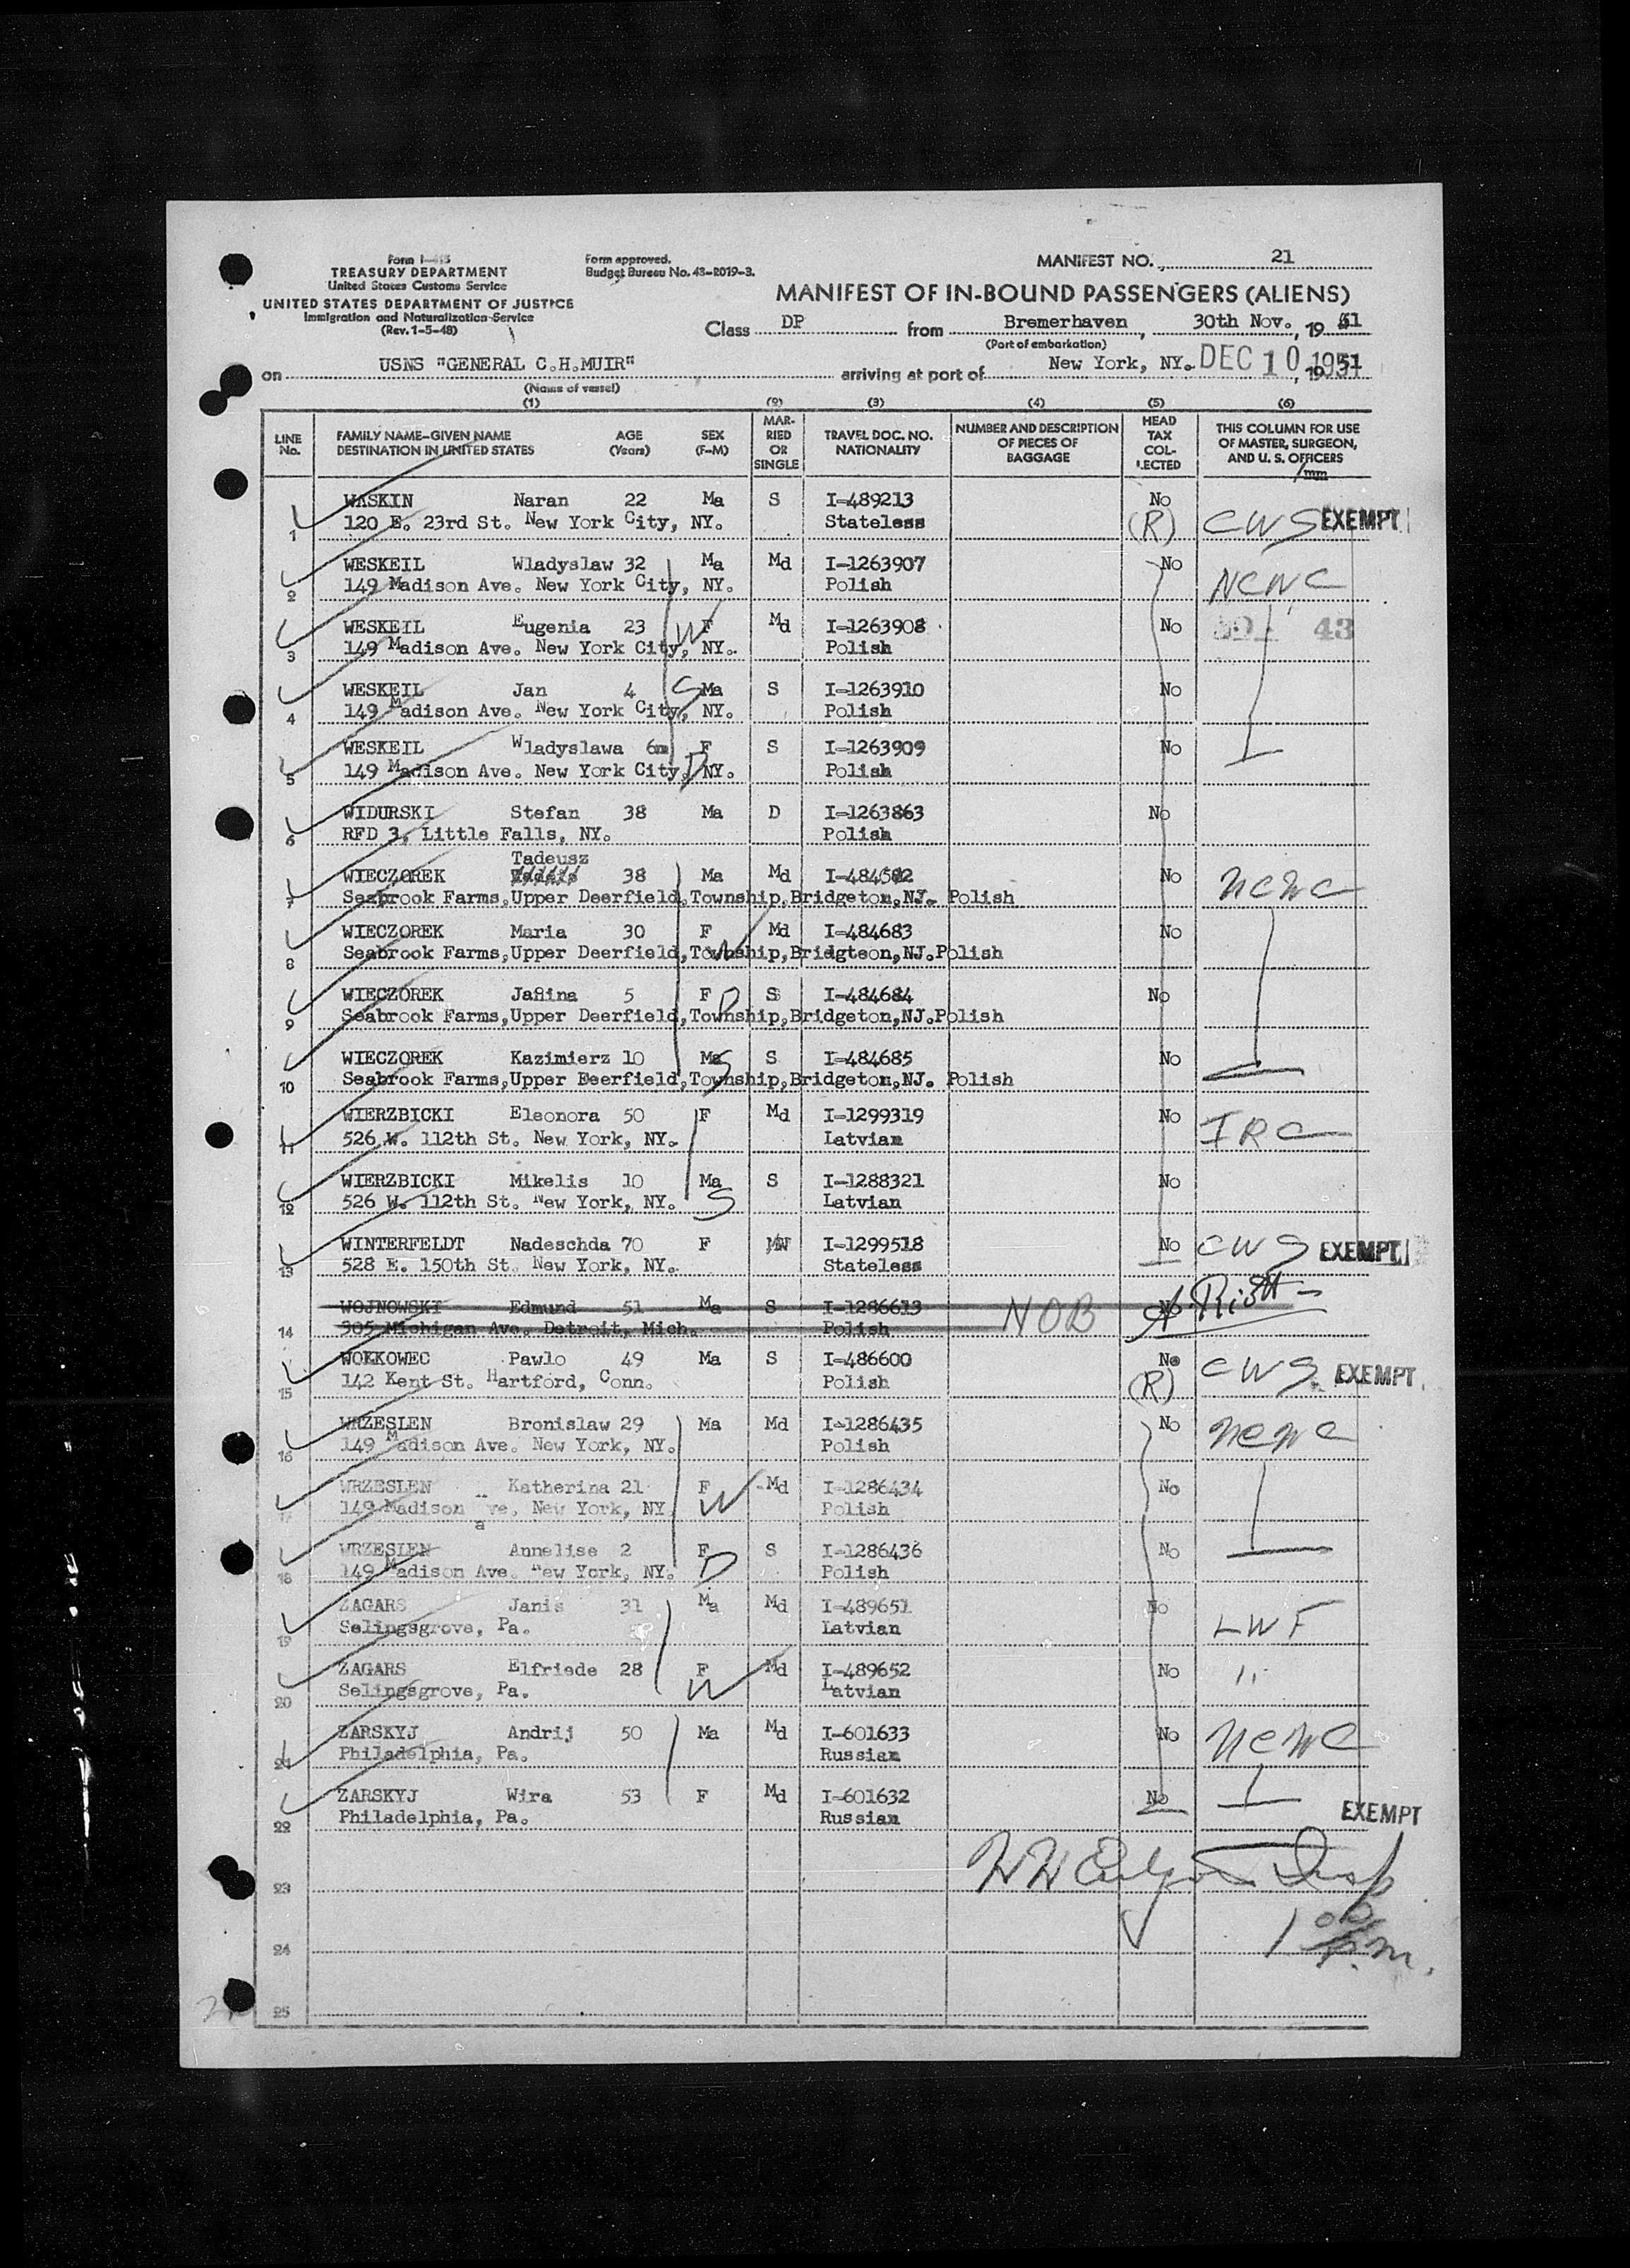 Form I-415
TREASURY DEPARTMENT
United States Customs Service
UNITED STATES DEPARTMENT OF JUSTICE
Immigration and Naturalization Service
(Rev. 1-5-48)
Form approved.
Budget Bureau No. 43-R019-3.
MANIFEST NO. 21
MANIFEST OF IN-BOUND PASSENGERS (ALIENS)
Class DP from Bremerhaven, 30th Nov., 1951
(Port of embarkation)
on USNS "GENERAL C.H.MUIR" arriving at port of New York, NY. DEC 10 1951
(Name of vessel)
(1) (2) (3) (4) (5) (6)
LINE No. FAMILY NAME-GIVEN NAME DESTINATION IN UNITED STATES AGE (Years) SEX (F-M) MARRIED OR SINGLE TRAVEL DOC. NO. NATIONALITY NUMBER AND DESCRIPTION OF PIECES OF BAGGAGE HEAD TAX COLLECTED THIS COLUMN FOR USE OF MASTER, SURGEON, AND U. S. OFFICERS
1 WASKIN Naran 22 Ma S I-489213 No CWS EXEMPT
120 E. 23rd St. New York City, NY. Stateless (R)
2 WESKEIL Wladyslaw 32 Ma Md I-1263907 No NCWC
149 Madison Ave. New York City, NY. Polish
3 WESKEIL Eugenia 23 F Md I-1263908 No 43
149 Madison Ave. New York City, NY. Polish W
4 WESKEIL Jan 4 Ma S I-1263910 No
149 Madison Ave. New York City, NY. Polish S
5 WESKEIL Wladyslawa 6m F S I-1263909 No
149 Madison Ave. New York City, NY. Polish D
6 WIDURSKI Stefan 38 Ma D I-1263863 No
RFD 3, Little Falls, NY. Polish
Tadeusz
7 WIECZOREK 38 Ma Md I-484582 No NCWC
Seabrook Farms,Upper Deerfield,Township,Bridgeton,NJ. Polish
8 WIECZOREK Maria 30 F Md I-484683 No
Seabrook Farms,Upper Deerfield,Township,Bridgteon,NJ.Polish W
9 WIECZOREK Janina 5 F S I-484684 No
Seabrook Farms,Upper Deerfield,Township,Bridgeton,NJ.Polish D
10 WIECZOREK Kazimierz 10 Ma S I-484685 No
Seabrook Farms,Upper Deerfield,Township,Bridgeton,NJ. Polish S
11 WIERZBICKI Eleonora 50 F Md I-1299319 No IRC
526 W. 112th St. New York, NY. Latvian
12 WIERZBICKI Mikelis 10 Ma S I-1288321 No
526 W. 112th St. New York, NY. Latvian S
13 WINTERFELDT Nadeschda 70 F W I-1299518 No CWS EXEMPT
528 E. 150th St. New York, NY. Stateless
14 WOJNOWSKI Edmund 51 Ma S I-1286613 NOB No
305 Michigan Ave. Detroit, Mich. Polish
15 WOKKOWEC Pawlo 49 Ma S I-486600 No CWS EXEMPT
142 Kent St. Hartford, Conn. Polish (R)
16 WRZESIEN Bronislaw 29 Ma Md I-1286435 No NCWC
149 Madison Ave. New York, NY. Polish
17 WRZESIEN Katherina 21 F Md I-1286434 No
149 Madison ave. New York, NY. Polish W
18 WRZESIEN Annelise 2 F S I-1286436 No
149 Madison Ave. New York, NY. Polish D
19 ZAGARS Janis 31 Ma Md I-489651 No LWF
Selingsgrove, Pa. Latvian
20 ZAGARS Elfriede 28 F Md I-489652 No "
Selingsgrove, Pa. Latvian W
21 ZARSKYJ Andrij 50 Ma Md I-601633 No NCWC
Philadelphia, Pa. Russian
22 ZARSKYJ Wira 53 F Md I-601632 No
Philadelphia, Pa. Russian EXEMPT
23
24 1 00 p.m.
25